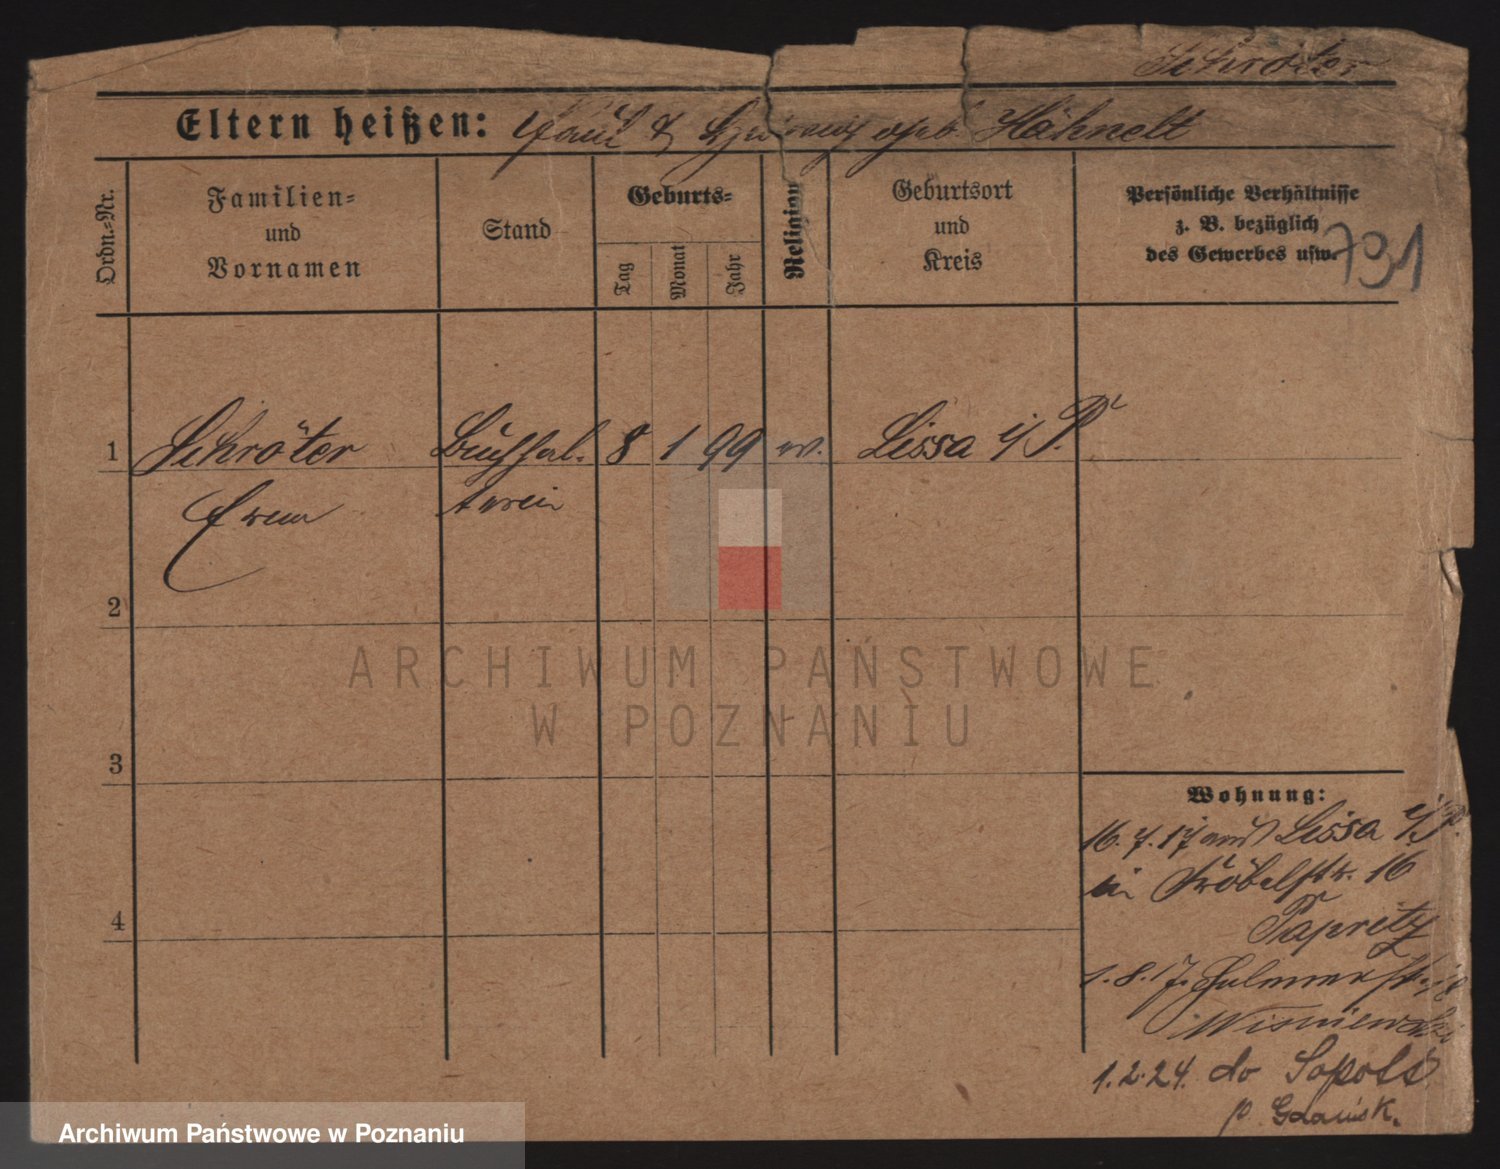 Schröter
Eltern heißen: Paul & geb. Hähnelt
Ordn.-Nr.
Familien-
und
Vornamen
Stand
Geburts-
Tag
Monat
Jahr
Religion
Geburtsort
und
Kreis
Persönliche Verhältnisse
z. B. bezüglich
des Gewerbes usw.
791
1 Schröter Buchhal- 8 1 99 ev. Lissa i/P.
terin
2
3
4
Wohnung:
16.7.17 aus Lissa i/P.
in Fröbelstr. 16
Papritz
1.8.17.
Wisniewski
1.2.24. do Sopot
p. Gdańsk.
ARCHIWUM PAŃSTWOWE
W POZNANIU
Archiwum Państwowe w Poznaniu